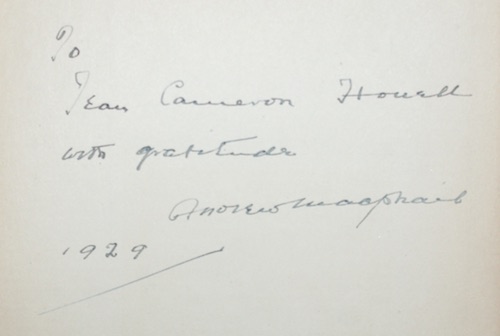 To
Jean Cameron Howell
with gratitude
Andrew Macphail
1929